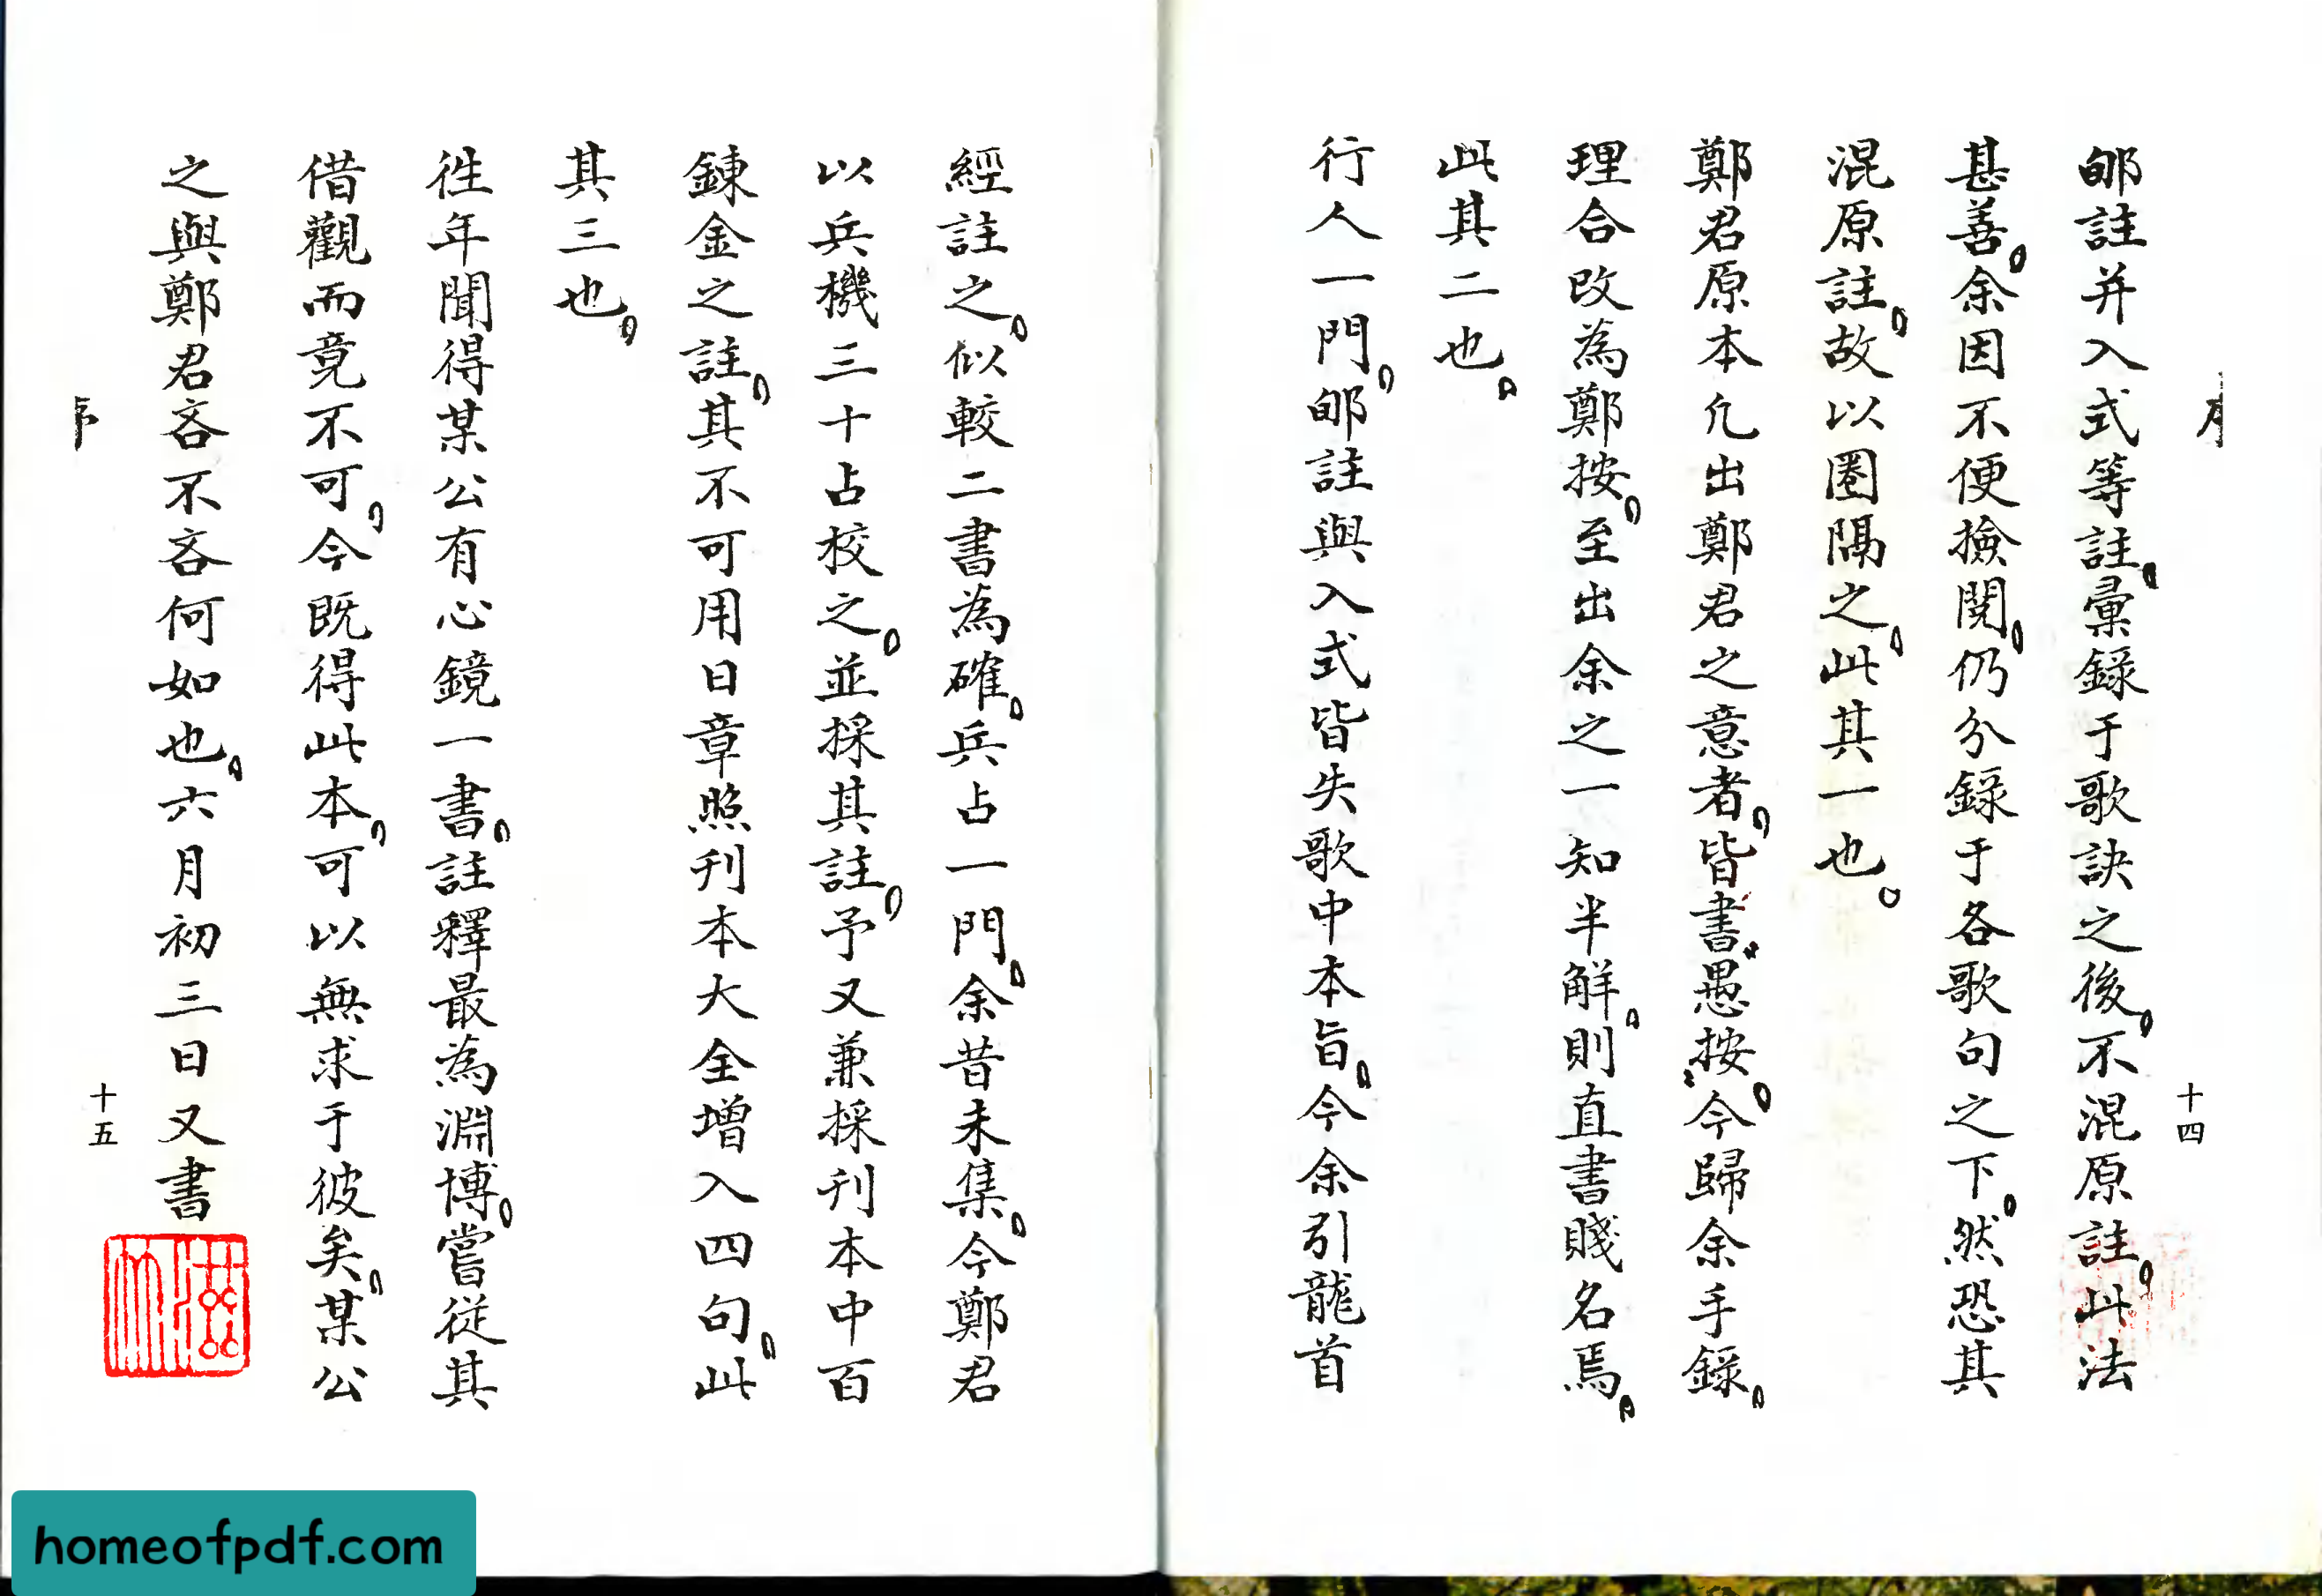 邮註并入式等註彙録于歌訣之後不混原註此法
甚善余因不便撿閱仍分録于各歌句之下然恐其
混原註故以圈隔之此其一也
鄭君原本凢出鄭君之意者皆書愚按今歸余手錄
理合改為鄭按至出余之一知半解則直書賤名焉
此其二也
行人一門邮註與入式皆失歌中本旨今余引龍首
十四
經註之似較二書為確兵占一門余昔未集今鄭君
以兵機三十占校之並採其註予又兼採刋本中百
鍊金之註其不可用日章照刋本大全增入四句此
其三也
徃年聞得某公有心鏡一書註釋最為淵博嘗從其
借觀而竟不可今既得此本可以無求于彼矣某公
之與鄭君吝不吝何如也六月初三日又書
十五
homeofpdf.com